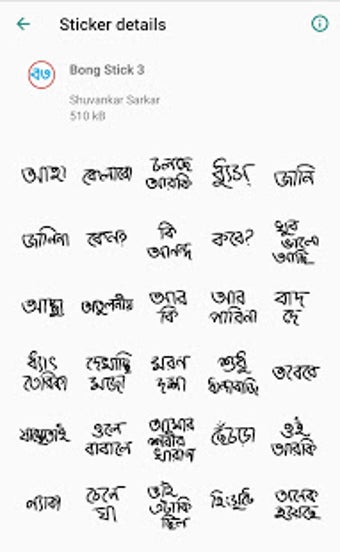 Sticker details
বং
Bong Stick 3
Shuvankar Sarkar
510 kB
আহা
কেলাবো
চলছে
আরকি
জানি
জানিনা
কেন?
কি
আনন্দ
কবে?
খুব
ভালো
আছি
আচ্ছা
অতুলনীয়
আর
কি
আর
পারিনা
বাদ
দে
ধ্যাৎ
তেরিকা
দেখাচ্ছি
মজা
মরন
দশা
শুধু
ধান্দাবাজি
তবেরে
যাচ্ছেতাই
ওলে
বাবালে
আমার
শরীর
খারাপ
ছেঁচড়া
ওই
আরকি
ন্যাকা
চেনে
যা
তাই
এটাকি
ছিল
হিংসুটি
অনেক
হয়েছে